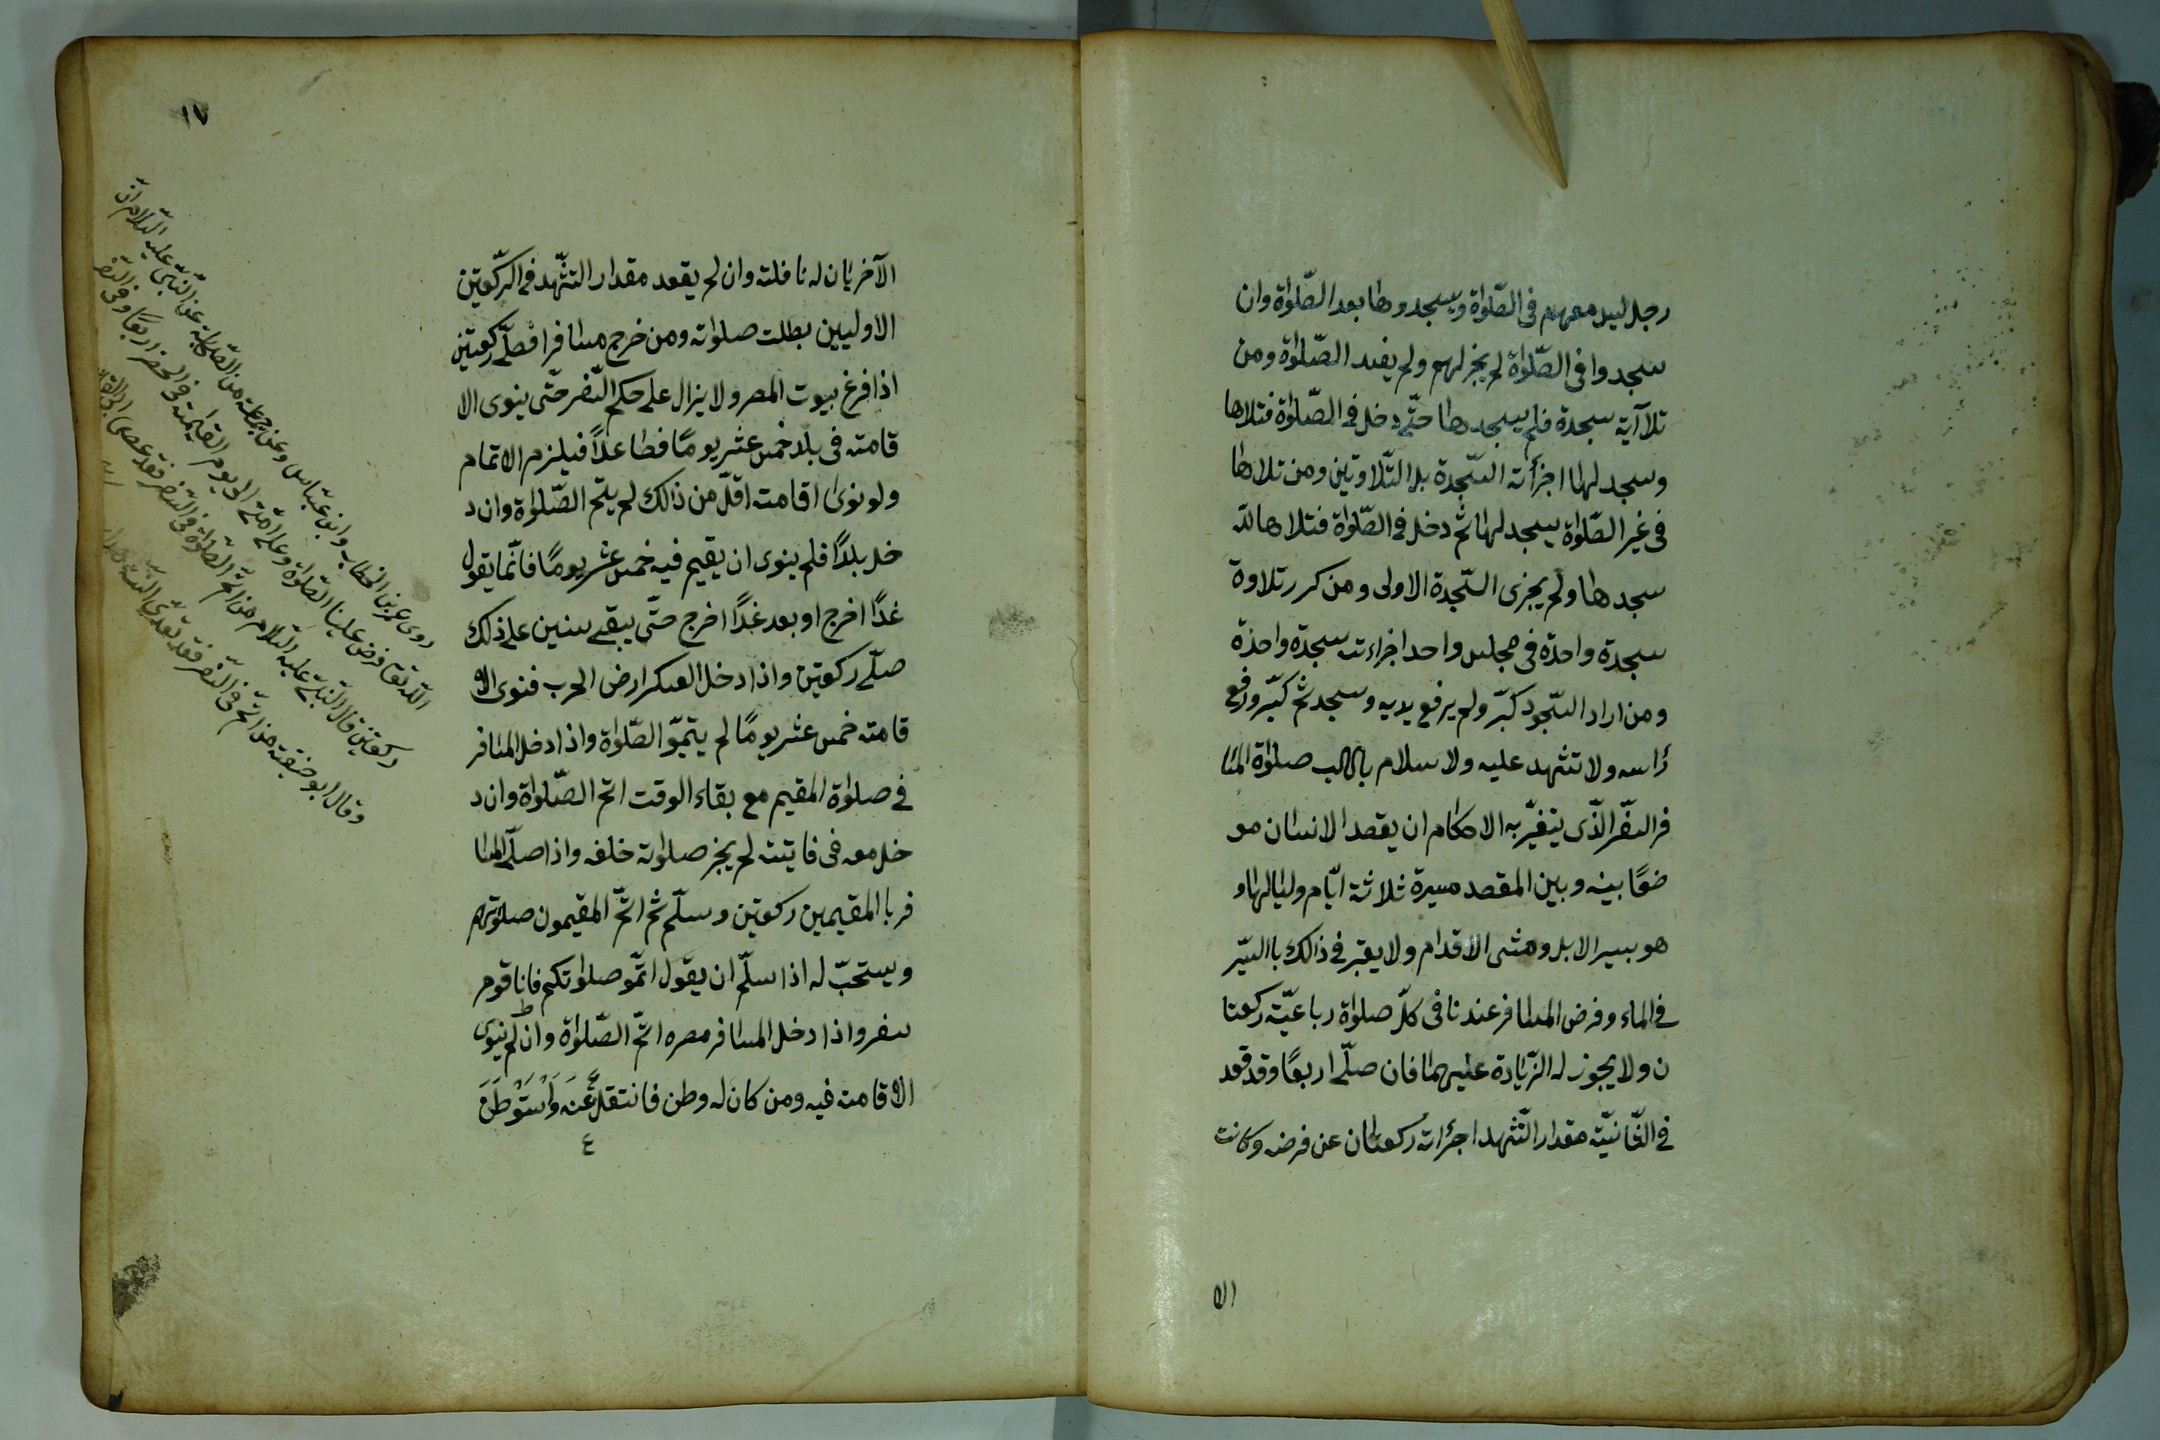 رجل ليس معهم فى الصّلوٰة وسجدوها بعد الصّلوٰة وان
سجدوا فى الصّلوٰة لم يجز لهم ولم يفسد الصّلوٰة ومن
تلا آية سجدة فلم يسجدها حتّى دخل فى الصّلوٰة فتلاها
وسجد لها اجزأته السّجدة بلا التّلاوتين ومن تلاها
فى غير الصّلوٰة يسجد لها ثم دخل فى الصّلوٰة فتلاها
سجدها ولم يجزى السّجدة الاولى ومن كرر تلاوة
سجدة واحدة فى مجلس واحد اجزاءت سجدة واحدة
ومن اراد السّجود كبّر ولم يرفع يديه وسجد ثم كبّر ورفع
رٔاسه ولا تشهد عليه ولا سلام باب صلوٰة المسا
فر السفّر الّذى يتغيّر به الاحكام ان يقصد الانسان مو
ضعًا بينه وبين المقصد مسيرة ثلاثة ايّام ولياليها و
هو بسير الابل ومشى الاقدام ولا يعتبر فى ذالك باالسيّر
فى الماء وفرض المسافر عندنا فى كلّ صلوٰة رباعيّة ركعتا
ن ولا يجوز له الزّيادة عليهما فان صلّى اربعًا وقد قعد
فى الثّانيّة مقدار التّشهد اجزاته ركعتان عن فرضه وكانت
الا
١٧
الآخريان له نافلته وان لم يقعد مقدار التشّهد فى الركّعتين
الاوليين بطلت صلوٰته ومن خرج مسافرا فصلّى ركعتين
اذا فرغ بيوت المصر ولا يزال على حكم السّفر حتّى ينوى الا
قامته فى بلد خمس عشر يومًا فطاعلاً فيلزم الاتمام
ولو نوىٰ اقامته اقلّ من ذالك لم يتمّ الصّلوٰة وان د
خل بلدًا فلم ينوى ان يقيم فيه خمس عشر يومًا فانّما يقول
غدًا اخرج او بعد غدًا اخرج حتّى يبقى سنين على ذلك
صلّى ركعتين واذا دخل العسكر ارض الحرب فنوى الا
قامته خمس عشر يومًا لم يتمّو الصّلوٰة واذا دخل المسافر
فى صلوٰة المقيم مع بقاء الوقت اتم الصّلوٰة وان د
خل معه فى فايتته لم يجز صلوٰته خلفه واذا صلّى المسا
فر باالمقيمين ركعتين وسلّم ثم اتمّ المقيمون صلوٰتهم
ويستحبّ له اذا سلّم ان يقول اتمّو صلوٰتكم فانا قوم
سفر واذا دخل المسافر مصره اتمّ الصّلوٰة وان لم ينوى
الاقامته فيه ومن كان له وطن فانتقل عَنْهُ وَاسْتَوْطَنَ
٤
روى عمر بن الخطاب وابن عبّاس وعن جملة من الصّحابة عن النّبى عليه السّلام انّ
اللّه تعٰ فرض علينا الصّلوٰة وعلى امّتى الى يوم القيٰمة فى الحضر اربعًا وفى السّفر
ركعتين قال النّبى عليه السّلام من اتمّ الصّلوٰة فى السّفر فقد عصى
وقال ابو حنيفة من اتمّ فى السّفر فقد تعدّى